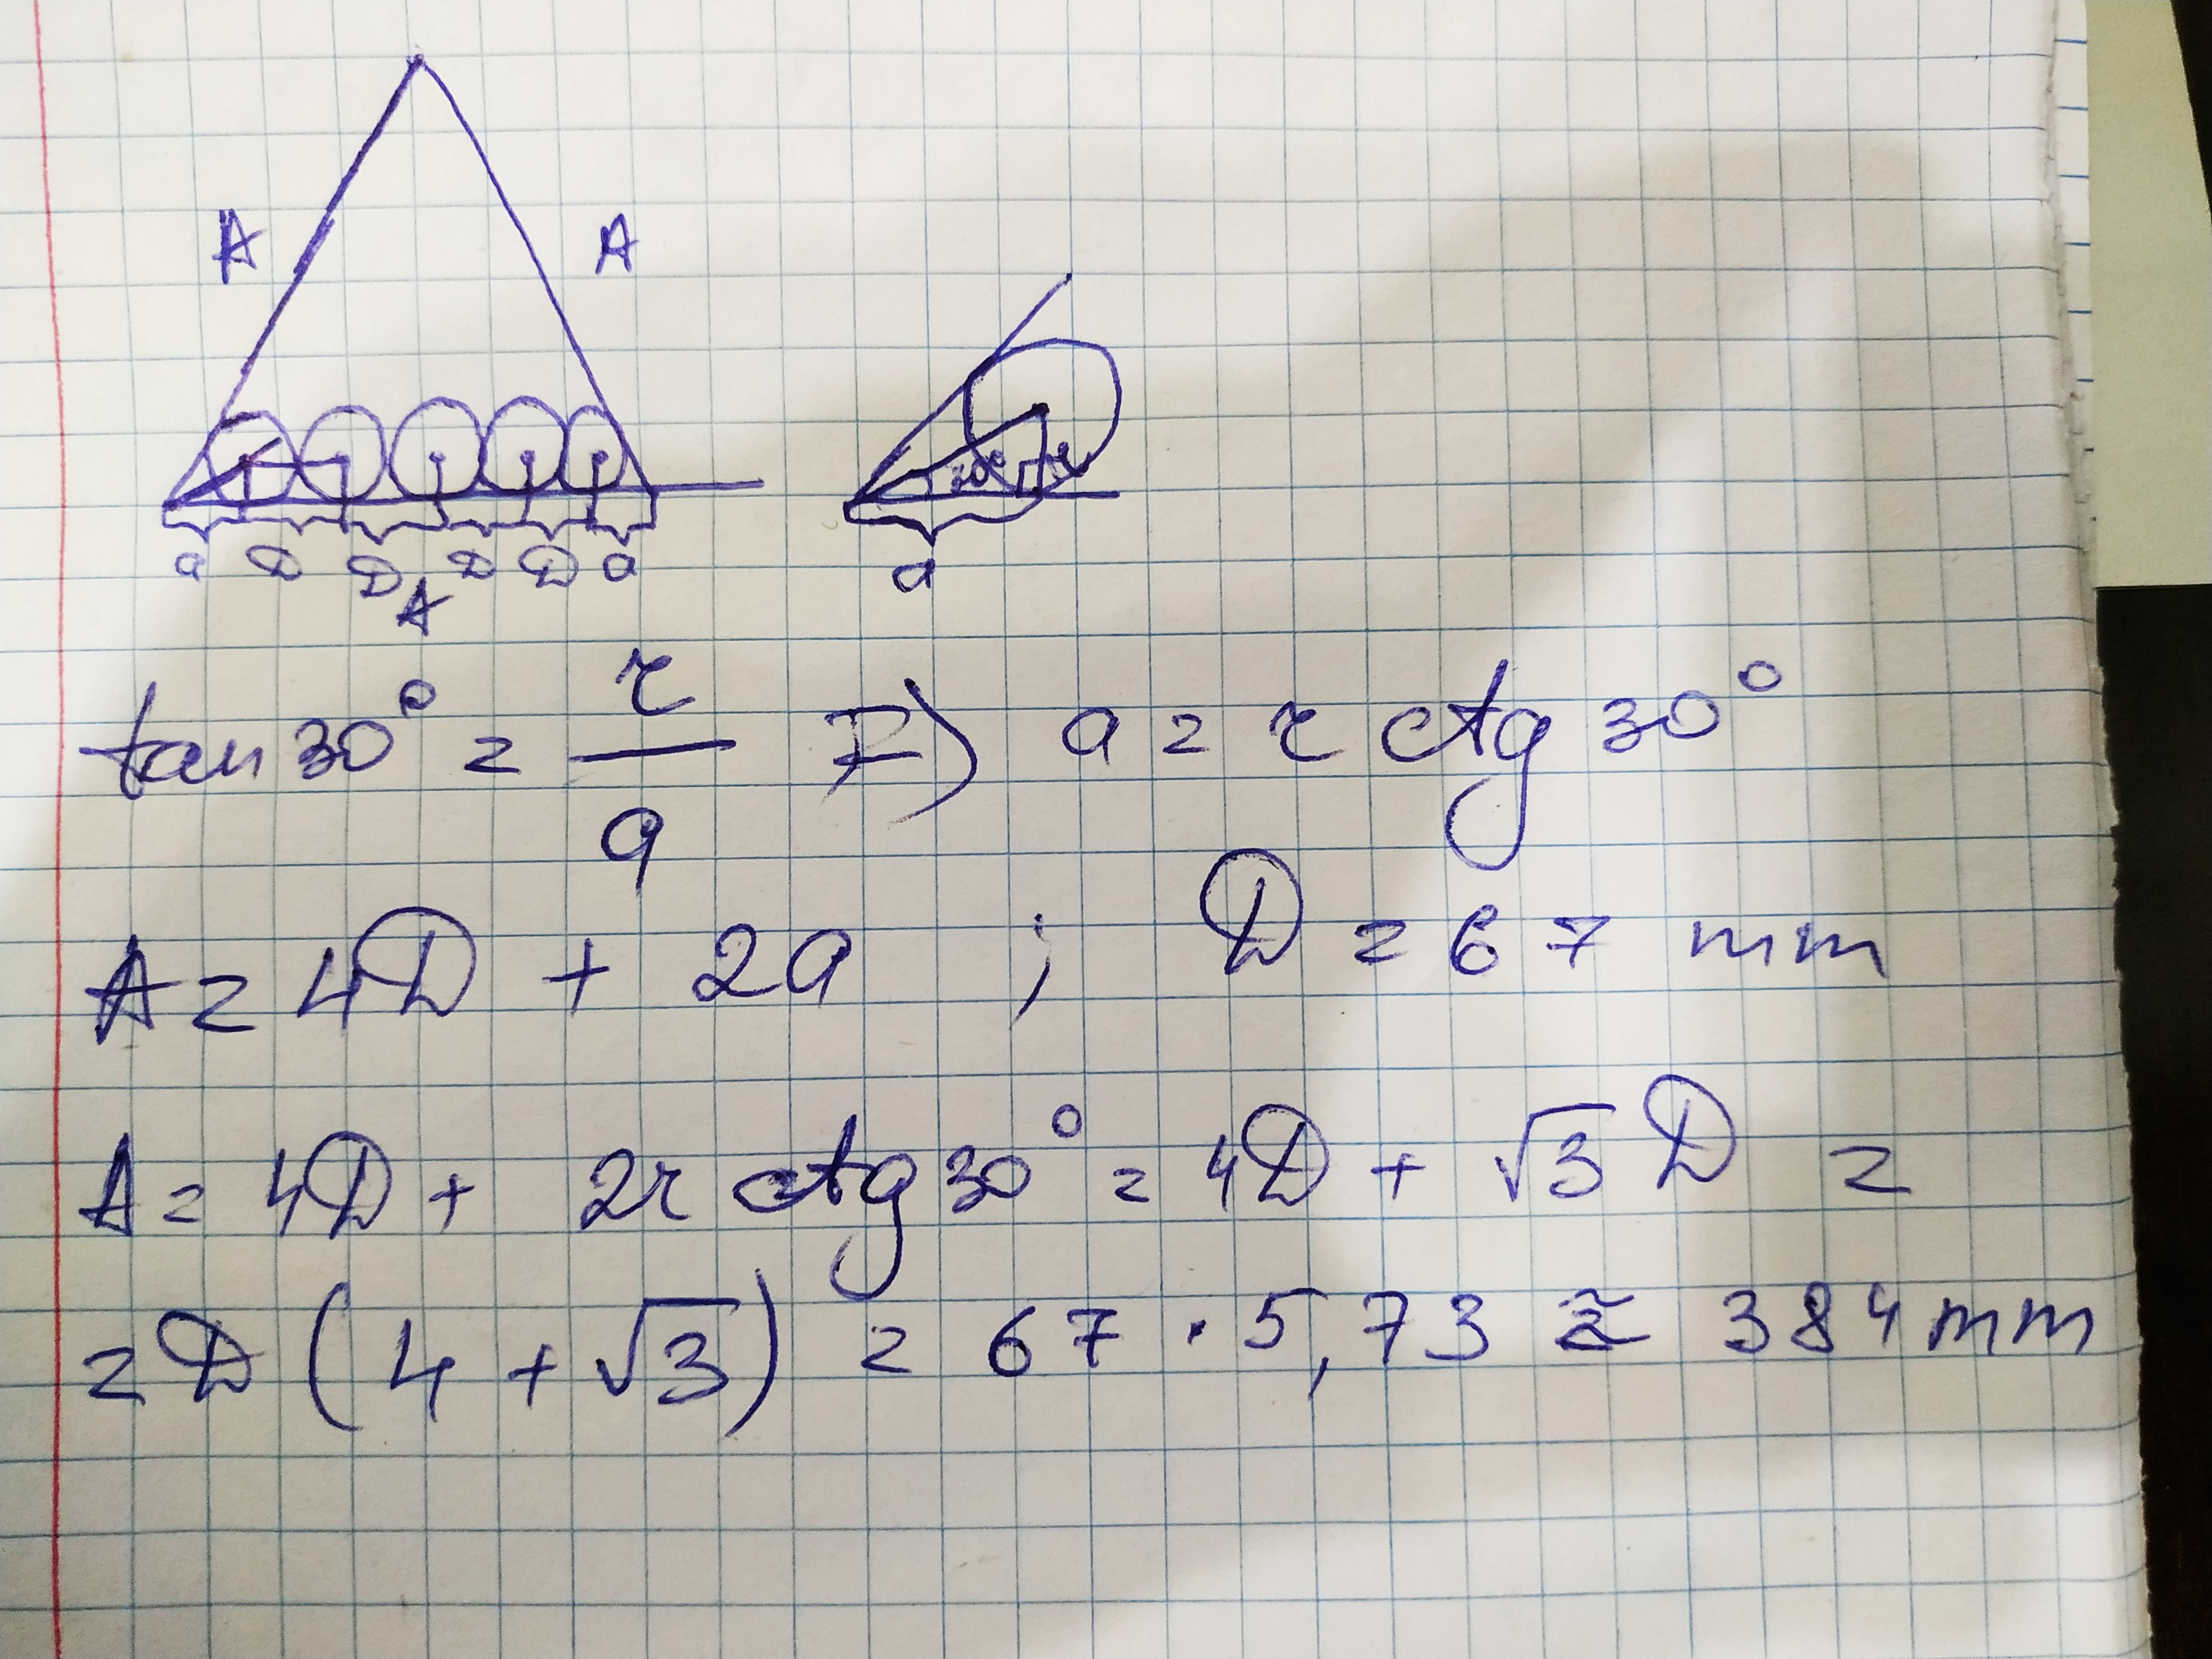 A A
a D D D D a
a
A
tan 30° = r/a => a = r ctg 30°
A = 4D + 2a ; D = 67 mm
A = 4D + 2r ctg 30° = 4D + √3 D =
= D (4 + √3) = 67 · 5,73 ≈ 384 mm